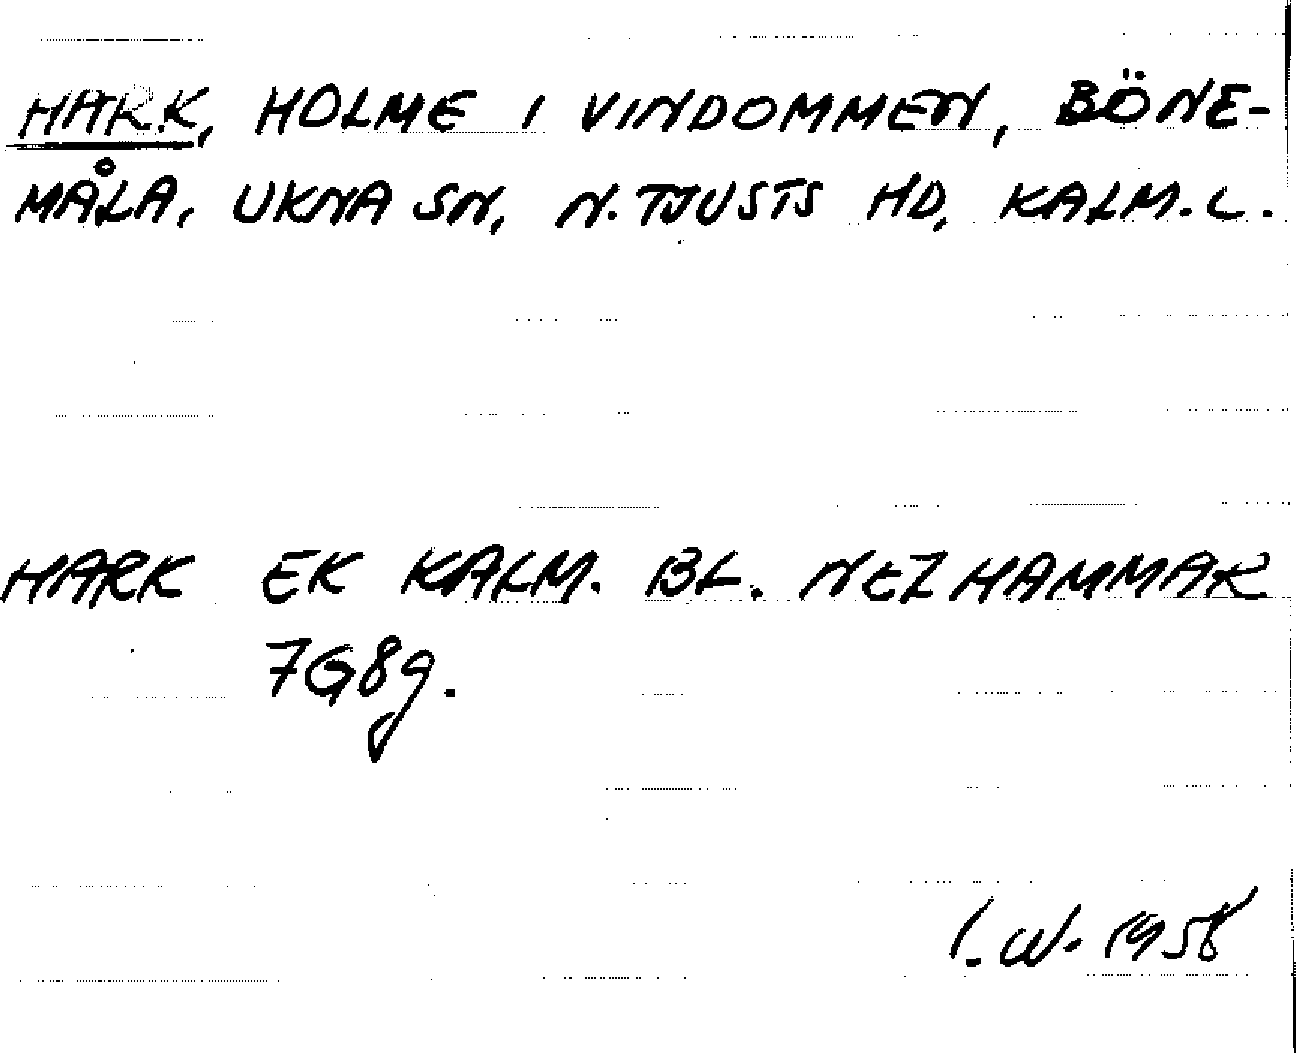 HARK, HOLME I VINDOMMEN, BÖNE-
MÅLA, UKNA SN, N. TJUSTS HD, KALM. L.
HARK EK KALM. BL. NEZHAMMAR
7G8g.
I. W. 1958